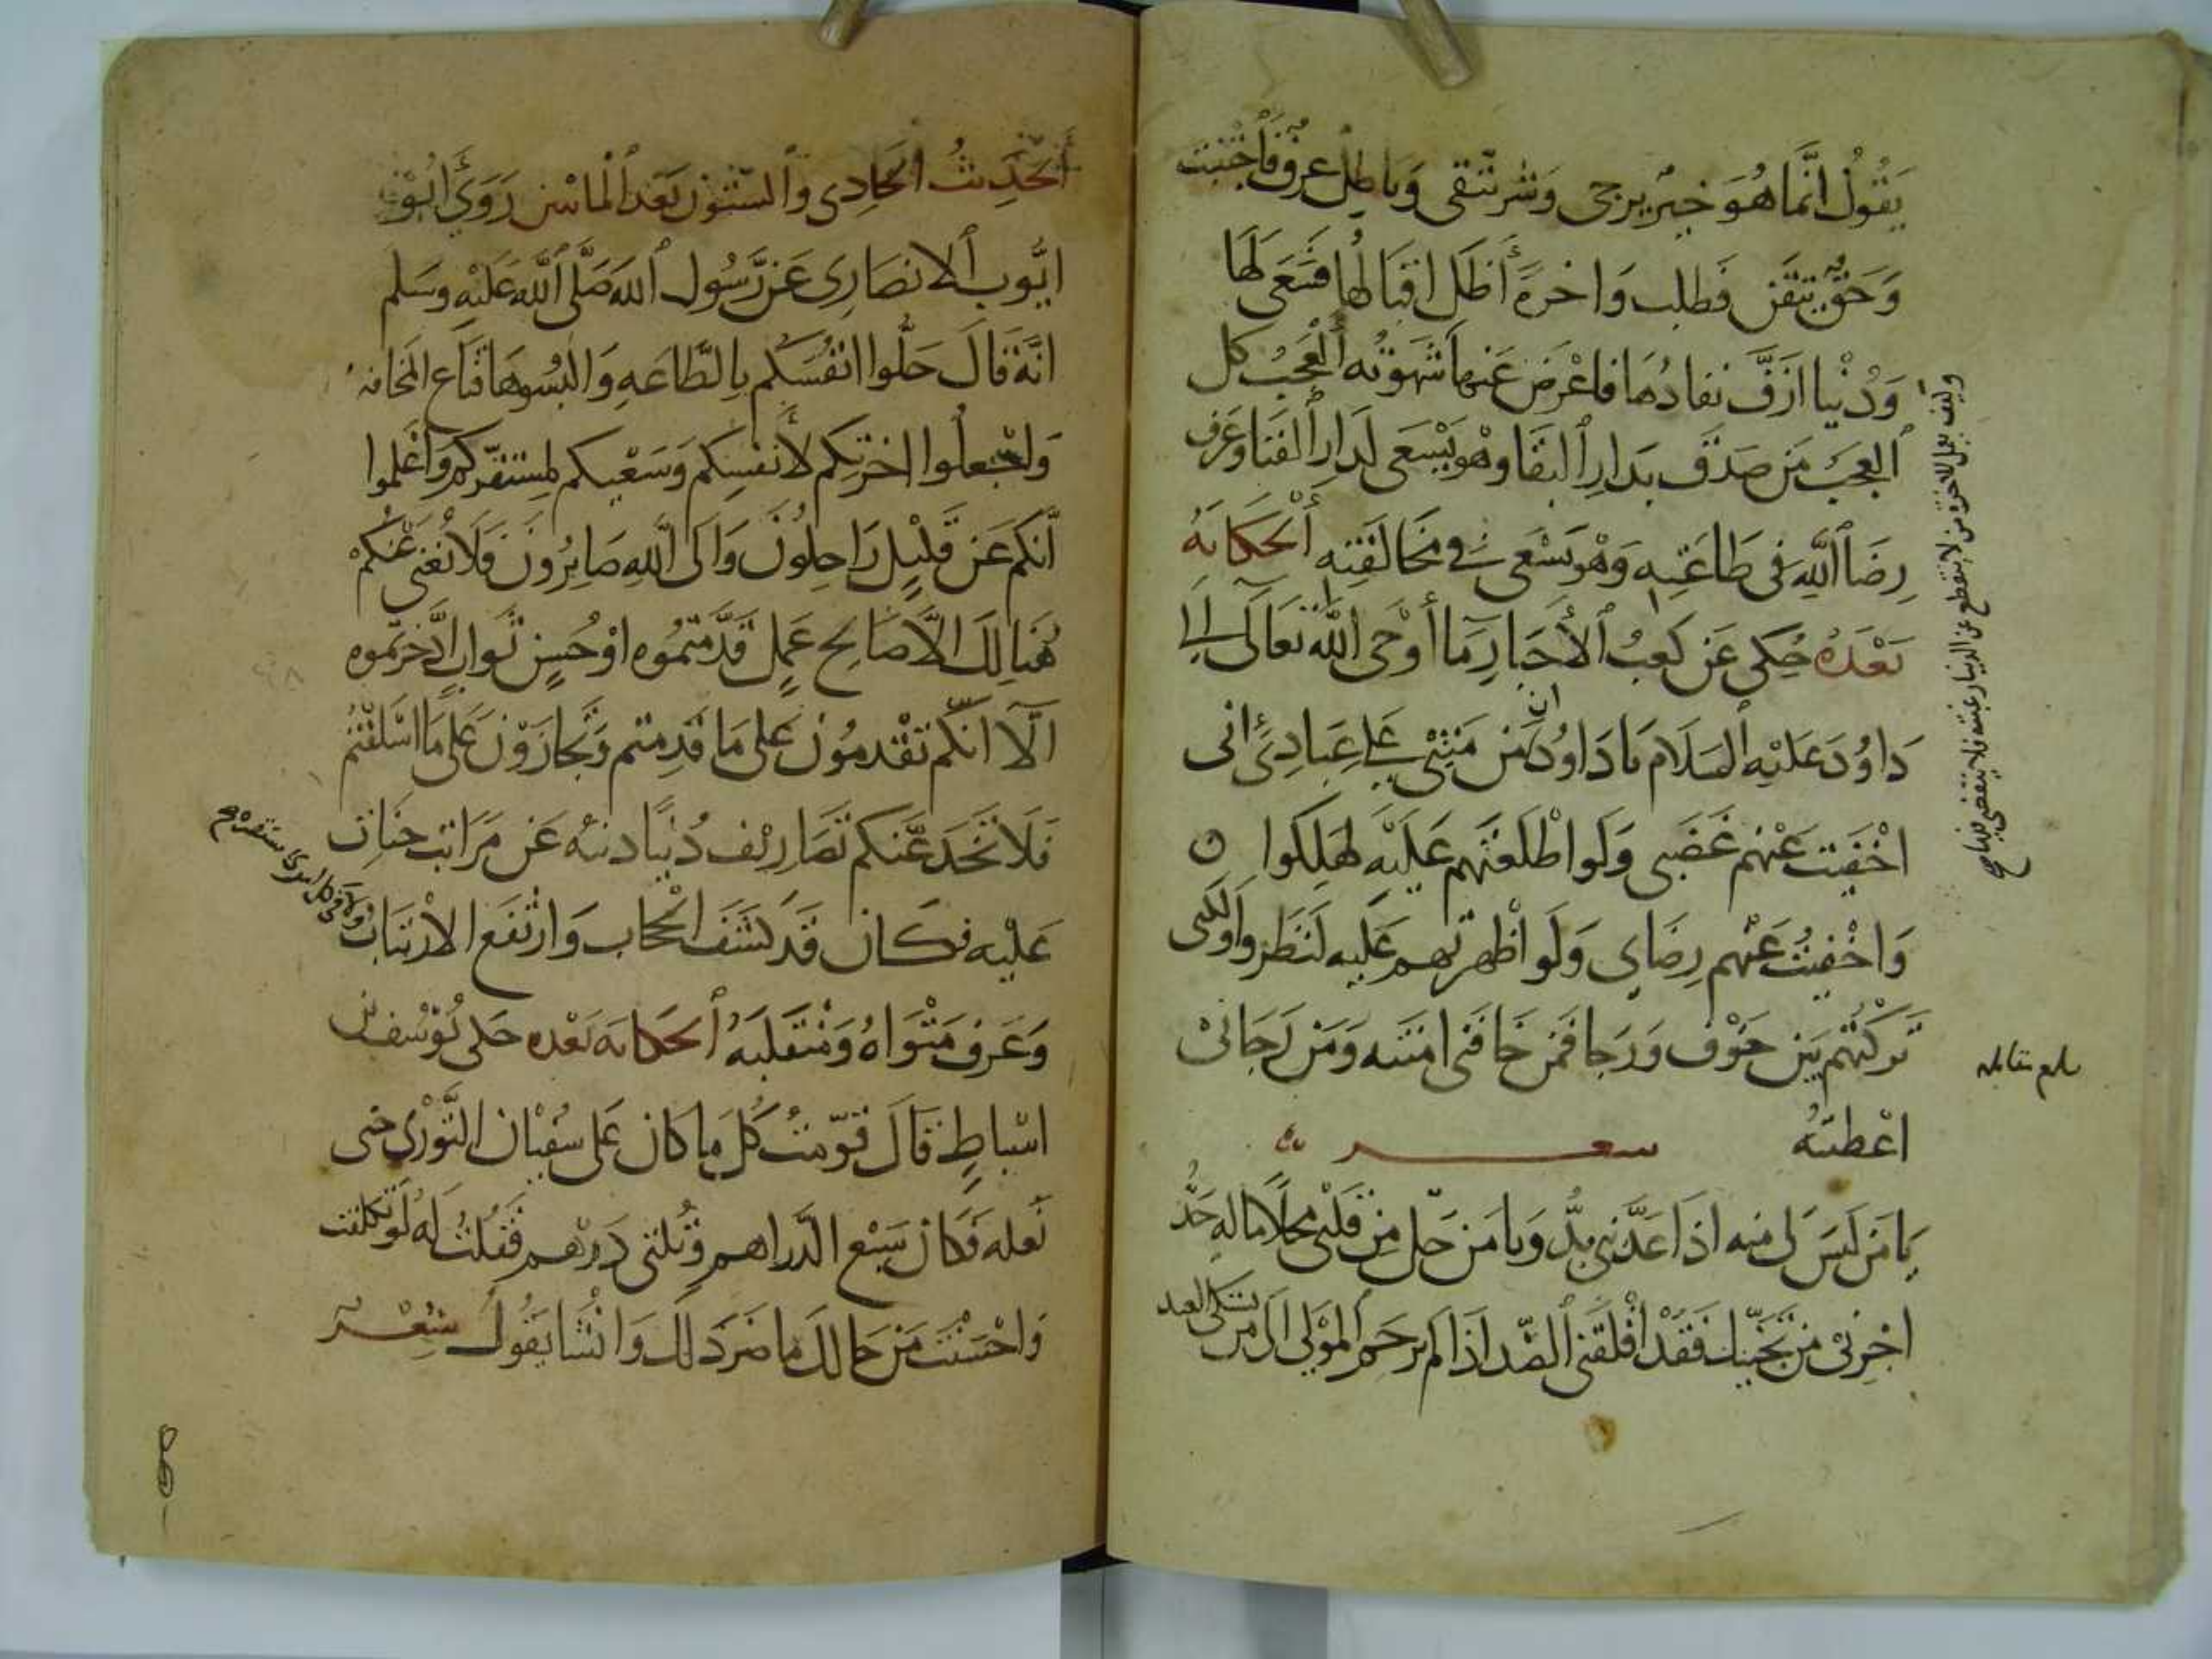 يَقُولُ انَّمَا هُوَ خَيرٌ يرجى وَشر يتّقى وَباطِل عرف فَاجْتنبَ
وَحَقٌّ يتقن فَطلب وَاخرة أَظَل اقبَالهَا فَسَعَى لَهَا
وَدُنْيا ازَفَّ نفادُهَا فاعْرَض عَنهَا شَهوَتُه العَجبُ كل
العجَبَ مَن صَدَّق بدارِ البقَا وهْو يَسْعَى لدارِ الفنَا وعَرف
رِضَا اللَّهِ فى طَاعَتِه وَهْو يَسْعَى فى مخَالفَتِه الحكايَهُ
بَعْدَهُ حُكى عَن كَعبُ الأحْبَارِ مَا أوْحى اللَّه تعَالَى الى
دَاوُدَ عَليْه السَلَام يا دَاوُد مَن مَنتِى على عِبَادِى انى
اخْفَيت عَنْهم غَضَبى وَلَو اطْلَعتَهم عَلَيْه لهَلِكوا ه
وَاخْفيْتُ عَنْهم رِضَاى وَلَو اظْهرتهم عَليه لَنَظَروا ولكنى
تَركْتُهم بَين خَوْف وَرَجا فَمَن خَافَنى امَنته وَمَن رَجَانى
اعْطيتهُ شعر
يَا مَن لَيسَ لى منه اذَا عَذّبَنى بدُّ وَيا مَن حَل مِن قلبى محَلًا ما له حَدُّ
اجرنى من تجنّيك فَقَدْ اقْلَقَنى الصّد اذا لم يَرحَم المَوْلى الى مَن يشتكى العبد
وكيف يعمل للاخرة من لا ينقطع عن الدنيا رغبته ولا تنقضى فيها
بلغ مقابله
الحَديثُ الحَادِى وَالستّون بَعد المائتين رَوَى ابُو
ايُّوب الانصَارِى عَن رَسُول اللَّه صَلَّى اللَّه عَليْه وسَلم
انَّه قالَ حَلُّوا انفُسَكم بالطَّاعَهِ وَالبسُوهَا قنَاع المخَافه
وَاجْعلُوا اخرَتكم لأنفسِكم وَسَعْيكم لمستقرّكم وَاعْلموا
أنّكم عَن قَليْل رَاحِلُونَ وَالى اللَّهِ صَايرُونَ فَلا يُغنى عَنكم
هُنالِكَ الّا صَالح عَمَل قَدَّمتُموه اوْ حُسن ثَواب ادَّخرتموه
الَا انّكم تقْدمُون عَلى مَا قَدمتم وَتجَازَوْن عَلى مَا اسْلَفْتُم
فَلا تخْدَعنّكم تصَاريْف دُنْيا دنيّه عَن مَراتب جنات
عَليْه فكَان قَد كشَف الحجاب وَارتَفَع الارتيابُ
وَعَرف مَثْوَاهُ وَمُنْقَلَبَهُ الحكايَه بَعْده حَكى يُوسُف بن
اسْباطٍ قَالَ قوّمتُ كُلّ مَا كان عَلى سفيْان الثَّوْرى حتى
نَعله فَكان سَبْع الدَّراهم وثلثى درهم فقلتُ لَه لو تكلفت
وَاحْسَنْتَ مَن حَالك مَا ضَر ذَلك وَانْشَا يقُول شعْر